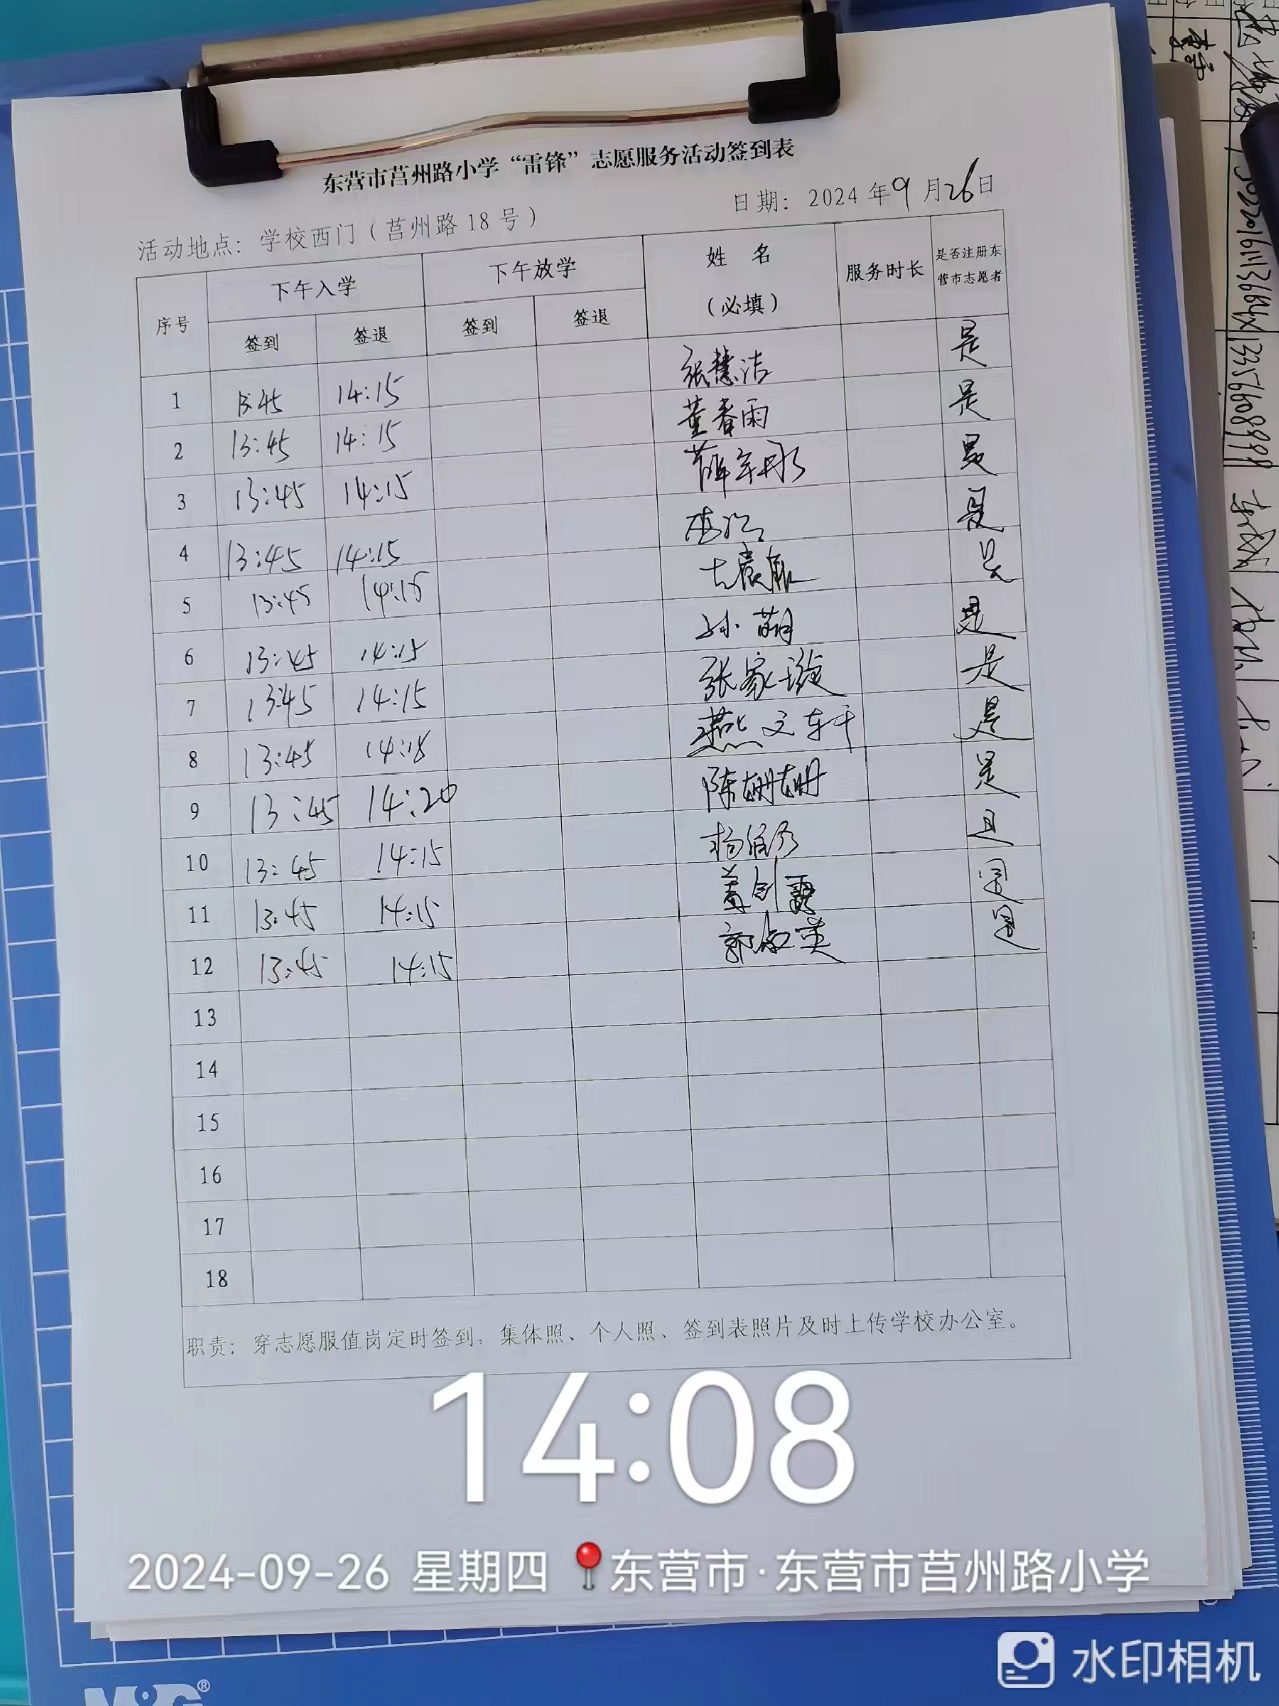 东营市莒州路小学“雷锋”志愿服务活动签到表
活动地点：学校西门（莒州路18号） 日期：2024年9月26日
序号 下午入学 下午放学 姓名（必填） 服务时长 是否注册东营市志愿者
签到 签退 签到 签退
1 13:45 14:15 张慧洁 是
2 13:45 14:15 董春雨 是
3 13:45 14:15 薛 是
4 13:45 14:15 是
5 13:45 14:15 是
6 13:45 14:15 孙萌 是
7 13:45 14:15 张家璇 是
8 13:45 14:15 燕文轩 是
9 13:45 14:20 陈姗姗 是
10 13:45 14:15 杨 是
11 13:45 14:15 是
12 13:45 14:15 郭淑英 是
13
14
15
16
17
18
职责：穿志愿服值岗定时签到，集体照、个人照、签到表照片及时上传学校办公室。
14:08
2024-09-26 星期四 东营市·东营市莒州路小学
水印相机
M&G®